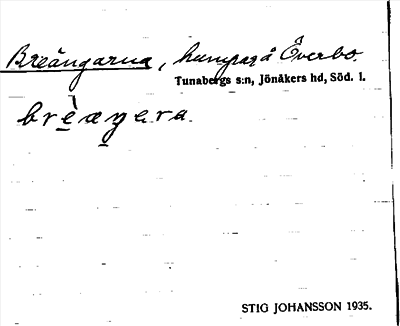 Breängarna, hump på Överbo.
Tunabergs s:n, Jönåkers hd, Söd. l.
brèæŋara.
STIG JOHANSSON 1935.